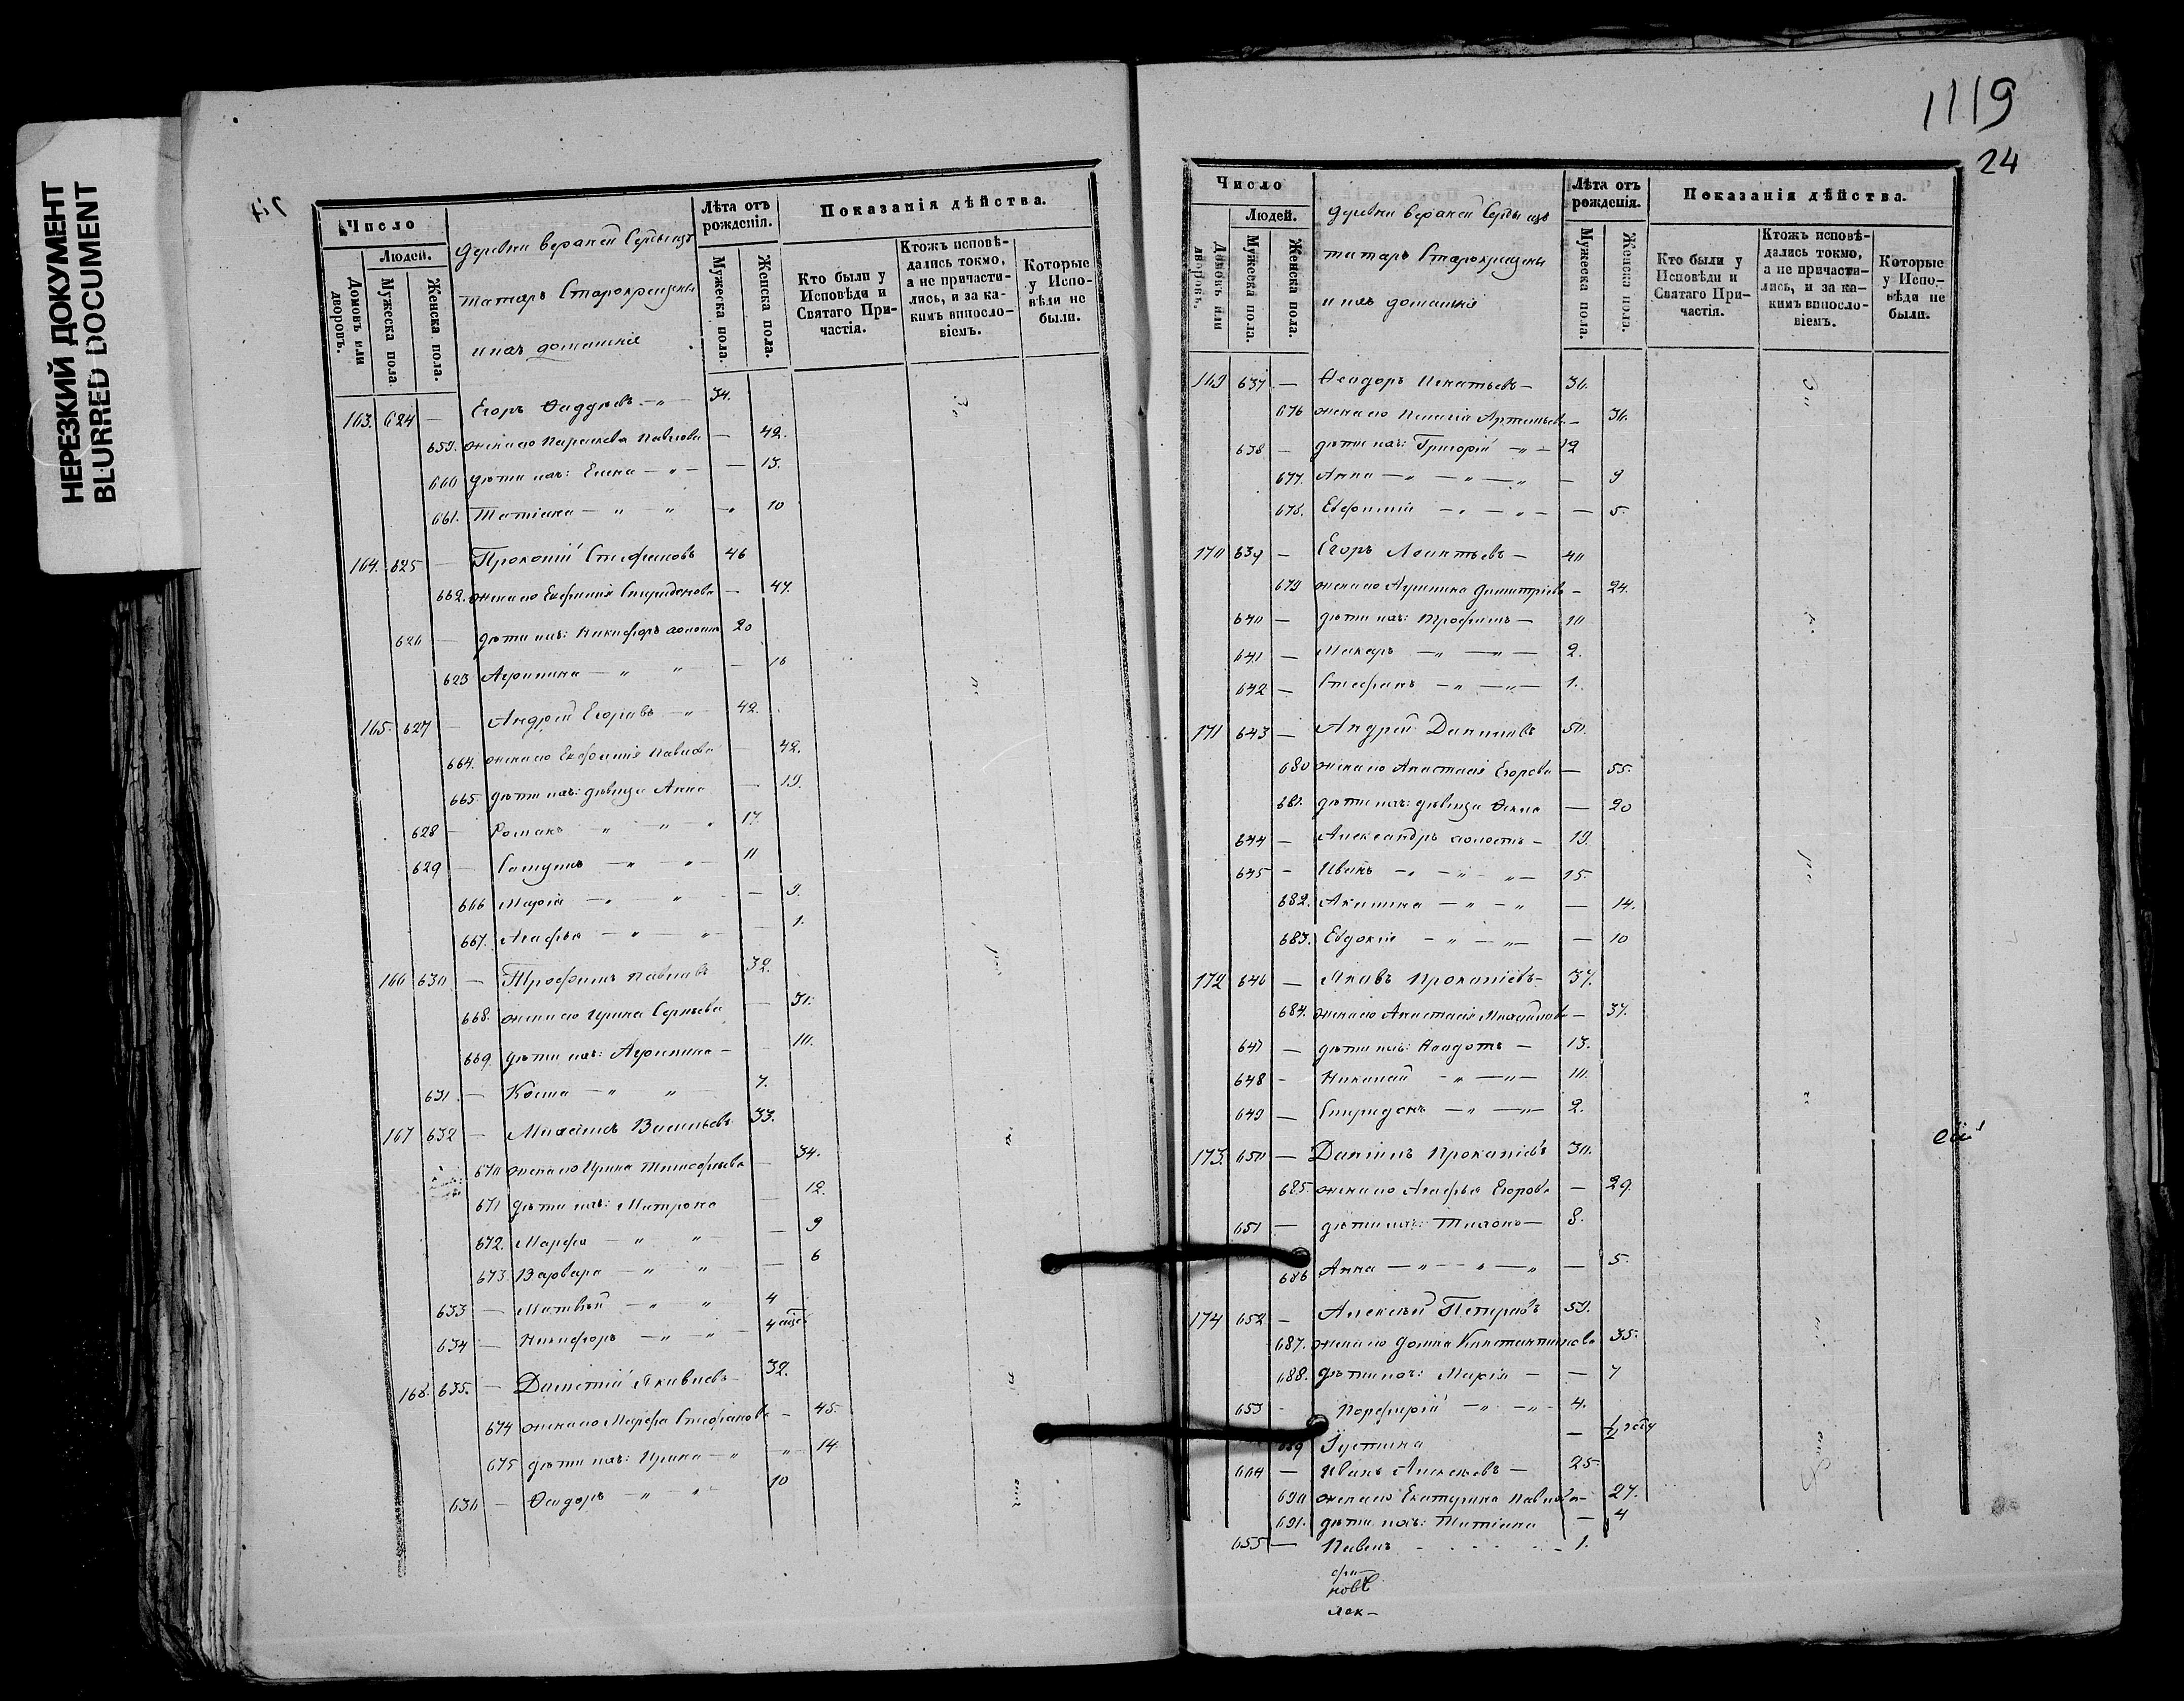 НЕРЕЗКИЙ ДОКУМЕНТ
BLURRED DOCUMENT
Число
Людей.
Домовъ или дворовъ.
Мужеска пола
Женска пола.
деревни верхней
татаръ Старокрещены
и ихъ домашніе
Лѣта отъ рожденія.
Мужеска пола.
Женска пола.
Показанія дѣйства.
Кто были у Исповѣди и Святаго Причастія.
Ктожъ исповѣдались токмо, а не причастились, и за какимъ винословіемъ.
Которые у Исповѣди не были.
163. 624 — Егоръ Фаддѣевъ —„— 34.
659. жена его Параскева Павлова — 42.
660 дѣти ихъ: Елена —„— — 13.
661. Татіана — „ — „ 10
164. 625 — Прокопій Стефановъ 46
662. жена его Евфимія Спиридонова — 47.
626 — дѣти ихъ: Никифоръ холостъ 20
623 Агрипина — „ „ — 16
165. 627 — Андрей Егоровъ —„ 42.
664. жена его Евфимія Павлова — 42.
665. дѣти ихъ: дѣвица Анна — 19.
628 — Романъ „ — „ — 17.
629 — —„ — „— 11
666 Марія —„ „ — 9.
667. Агафья —„— „— — 1.
166 630 — Трофимъ Павловъ 32.
668. жена его Ирина Сергѣева — 31.
669. дѣти ихъ: Агрипина — 10.
631 — Косма —„ „ 7.
167 632 — Михаилъ Васильевъ 33.
670 жена его Ирина Тимофѣева — 34.
671 дѣти ихъ: Матрона — 12.
672. Марфа — „ „— — 9
673. Варвара — „ „— — 6
633 — Матвѣй —„ „ 4
634 — Никифоръ —„ „— 4
168. 635. — Яковлевъ 32.
674 жена его Марфа Стефанова — 45.
675 дѣти ихъ: Ирина —„ „ 14.
636 — Ѳедоръ —„ „ 10
1119
24
Число
Людей.
Домовъ или дворовъ.
Мужеска пола.
Женска пола.
деревни верхней изъ
татаръ Старокрещены
и ихъ домашніе
Лѣта отъ рожденія.
Мужеска пола.
Женска пола.
Показанія дѣйства.
Кто были у Исповѣди и Святаго Причастія.
Ктожъ исповѣдались токмо, а не причастились, и за какимъ винословіемъ.
Которые у Исповѣди не были.
169 637 — Игнатьевъ — 36.
676 жена его Пелагія Артемьева — 36.
638 — дѣти ихъ: Григорій —„— 12
677. Анна —„ —„—„ — 9
678. Евфимія —„—„— — 5.
170 639 — Егоръ Леонтьевъ — 40
679 жена его Агрипина Димитріева — 24.
640 — дѣти ихъ: Трофимъ — 10
641 — Макаръ —„ —„— 2.
642 — Стефанъ —„ —„— 1.
171 643 — Андрей Даниловъ 50.
680 жена его Анастасія Егорова — 55.
681. дѣти ихъ: дѣвица Ѳекла — 20
644 — Александръ холостъ — 19.
645 — Иванъ —„ —„ „— 15.
682. Акилина —„ —„ — 14.
683. Евдокія —„ —„— — 10
172 646 — Яковъ Прокопіевъ — 37.
684. жена его Анастасія Михайлова — 37.
647 — дѣти ихъ: — 13.
648 — Николай —„ —„— 10.
649 — Спиридонъ —„ —„— 2.
173. 650 — Даніилъ Прокопіевъ 30.
685. жена его Агафья Егорова — 29.
651 — дѣти ихъ: Тихонъ — 8.
686 Анна —„—„—„ — 5.
174 652 — Алексѣй Петровъ 59.
687. жена его Домна Константинова 35.
688. дѣти ихъ: Марія — — 7
653 — Порфирій —„ —„— 4.
689 Іустина — ½ году
664 — Иванъ Алексѣевъ — 25.
690 жена его Екатерина Павлова — 27.
691. дѣти ихъ: Татіана — 4
655 — Павелъ - - - - 1.